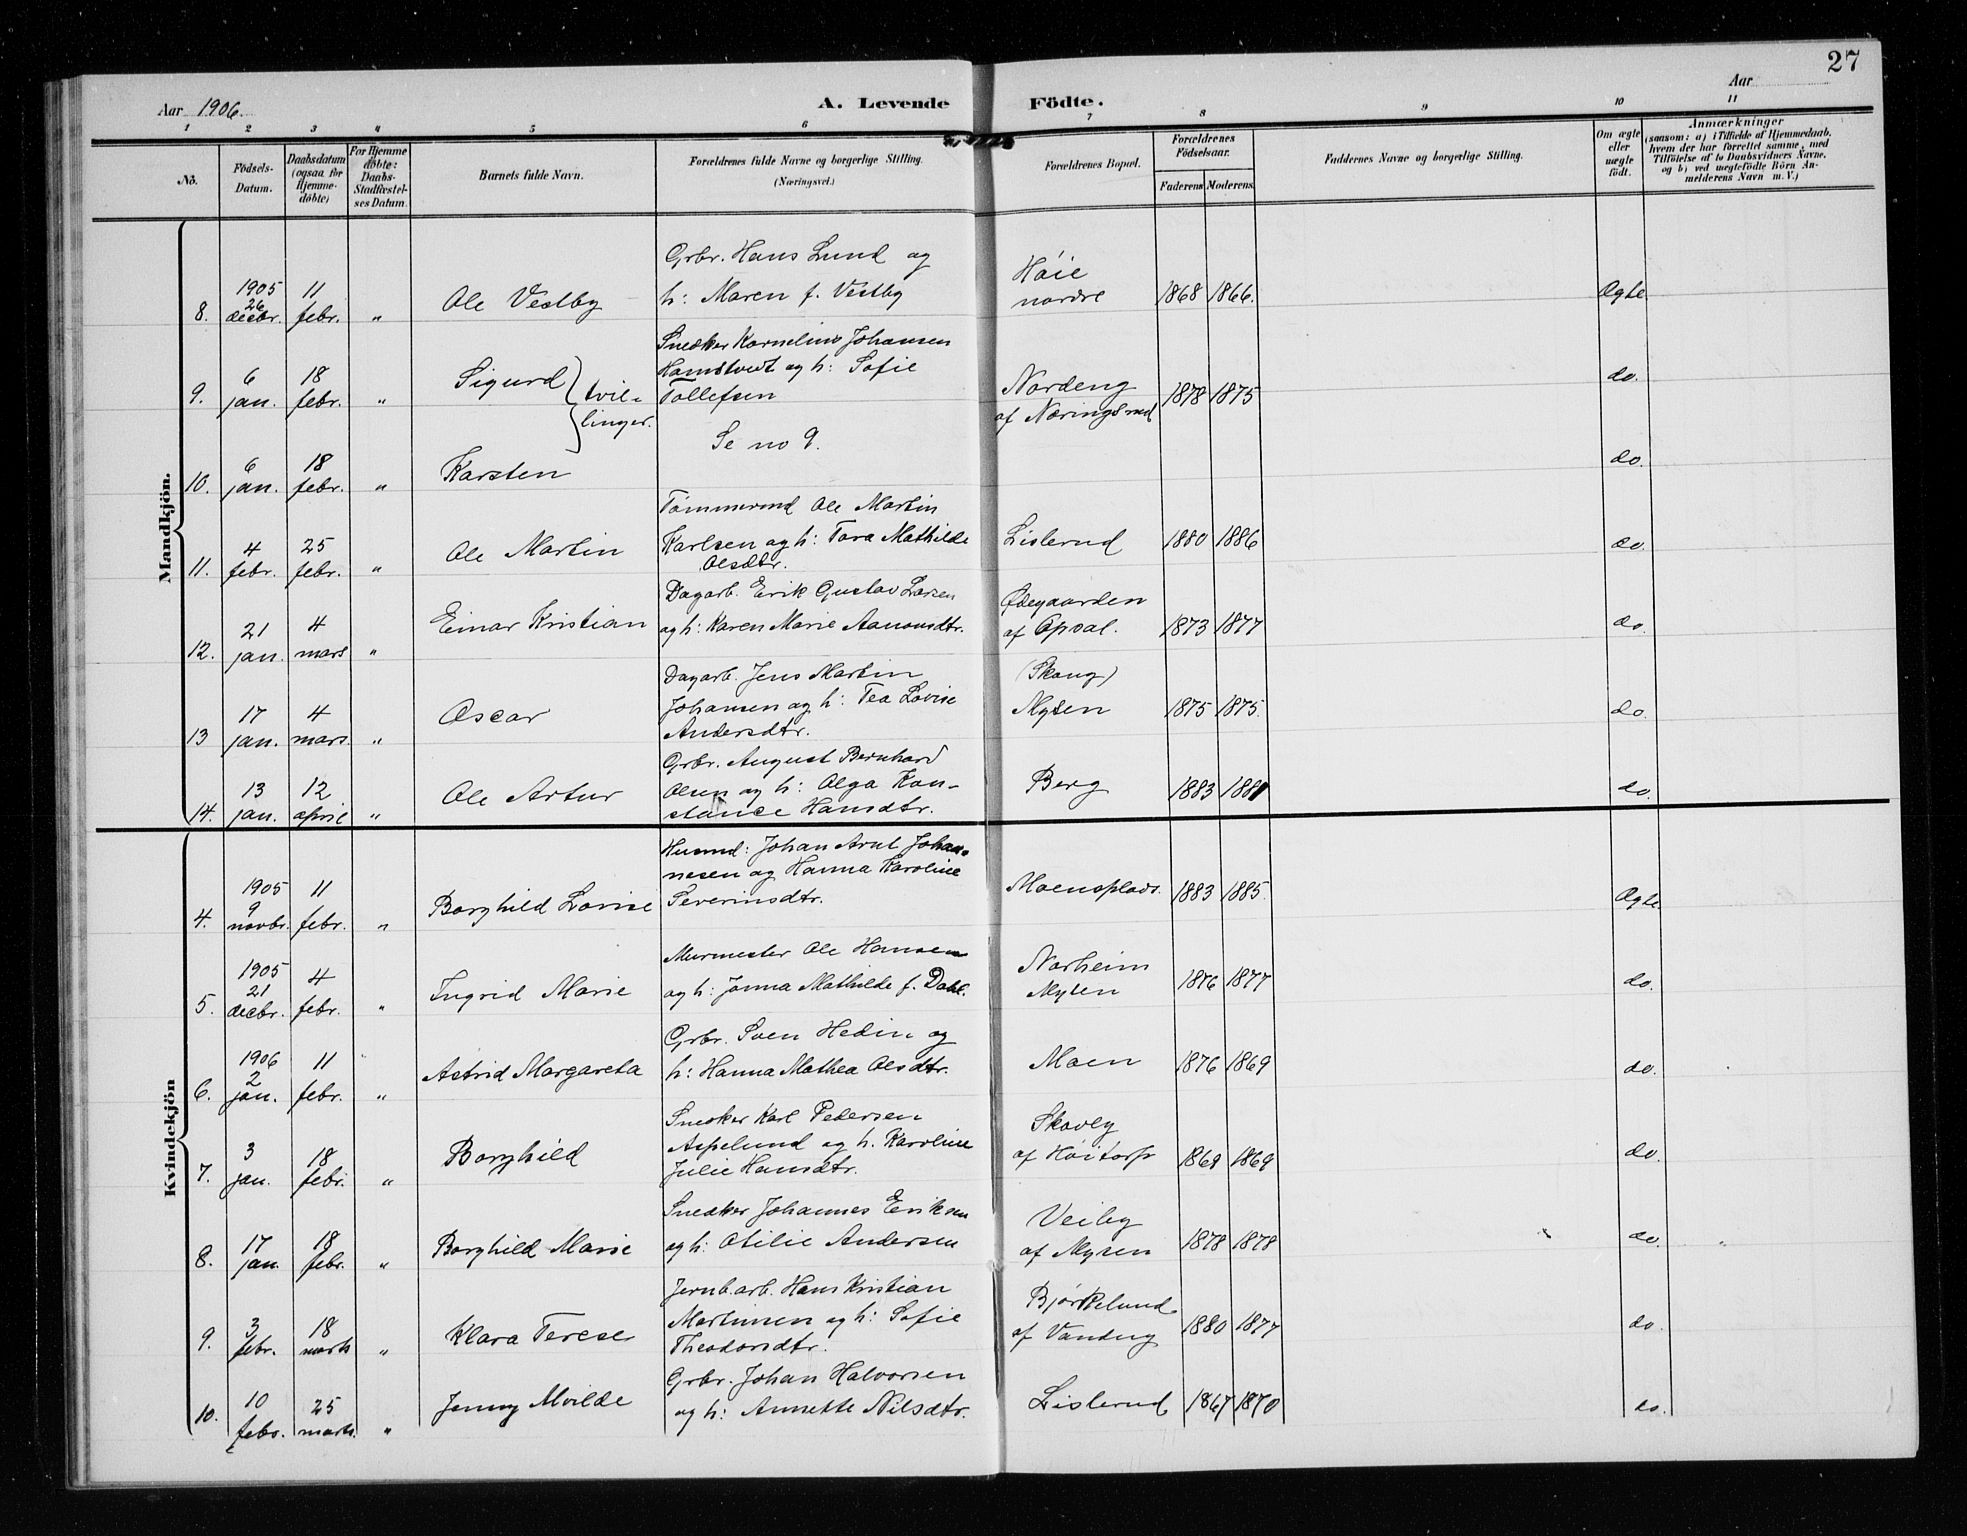 27
Aar 1906.
A. Levende Födte.
Aar
1 2 3 4 5 6 7 8 9 10 11
No.
Födsels-
Datum.
Daabsdatum
(ogsaa for
Hjemme-
døbte)
For Hjemme
døbte:
Daabs-
Stadfæstel-
ses Datum.
Barnets fulde Navn.
Forældrenes fulde Navne og borgerlige Stilling.
(Næringsvei.)
Forældrenes Bopæl.
Forældrenes
Födselsaar.
Faderens Moderens.
Faddernes Navne og borgerlige Stilling.
Om ægte
eller
uægte
født.
Anmærkninger
(saasom: a) i Tilfælde af Hjemmedaab,
hvem der har forrettet samme, med
Tilføielse af to Daabsvidners Navne,
og b) ved uægtefödte Börn An-
melderens Navn m. V.)
Mandkjön.
8. 1905 26 decbr. 11 febr. " Ole Vestby
Grbr. Hans Lund og
h: Maren f. Vestby
Høie
nordre
1868 1866. Ægte
9. 6 jan. 18 febr. " Sigurd } tvil-
linger.
Snedker Kornelius Johansen
Hamstvedt og h: Sofie
Tollefsen
Nordeng
af Næringsrud
1878 1875 do.
10. 6 jan. 18 febr. " Karsten
Se no 9.
do.
11. 4 febr. 25 febr. " Ole Martin
Tømmermd Ole Martin
Karlsen og h: Tora Mathilde
Olsdtr.
Lislerud 1880 1886 do.
12. 21 jan. 4 mars " Einar Kristian
Dagarb. Erik Gustav Larsen
og h: Karen Marie Aanonsdtr.
Ødegaarden
af Opsal.
1873 1877 do.
13 17 jan. 4 mars. " Oscar
Dagarb. Jens Martin
Johansen og h: Tea Lovise
Andersdtr.
(Skaug)
Mysen
1875 1875. do.
14. 13 jan. 12 april " Ole Artur
Grbr. August Bernhard
Olsen og h: Olga Kon-
stance Hansdtr.
Berg 1883 1881 do.
Kvindekjön
4. 1905 9 novbr. 11 febr. " Borghild Lovise
Husmd: Johan Arnt Johan-
nesen og Hanna Karoline
Severinsdtr.
Moensplads. 1883 1885. Ægte.
5. 1905 21 decbr. 4 febr. " Ingrid Marie
Murmester Ole Hansen
og h: Jonna Mathilde f. Dahl.
Norheim
Mysen
1876 1877 do.
6. 1906 2 jan. 11 febr. " Astrid Margareta
Grbr. Sven Hedin og
h: Hanna Mathea Olsdtr.
Moen 1876 1869 do.
7. 3 jan. 18 febr. " Borghild
Snedker Karl Pedersen
Aspelund og h. Karoline
Julie Hansdtr.
Skovly
af Høitorp
1869 1869 do.
8. 17 jan. 18 febr. " Borghild Marie
Snedker Johannes Eriksen
og h: Otilie Andersen
Veiby
af Mysen
1878 1878 do.
9. 3 febr. 18 marts " Klara Terese
Jernb.arb. Hans Kristian
Martinsen og h: Sofie
Theodorsdtr.
Bjørkelund
af Vandug
1880 1877 do.
10. 10 febr. 25 marts. " Jenny Mvilde
Grbr. Johan Halvorsen
og h: Annette Nilsdtr.
Lislerud 1867 1870 do.